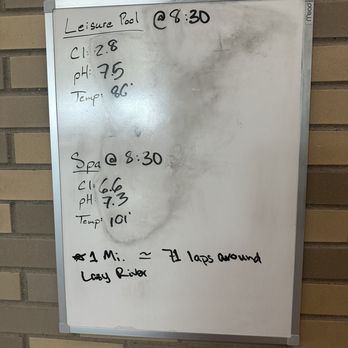 Leisure Pool @ 8:30
Cl: 2.8
pH: 7.5
Temp: 86°
Spa @ 8:30
Cl: 6.6
pH: 7.3
Temp: 101°
* 1 Mi. ≃ 71 laps around
Lazy River